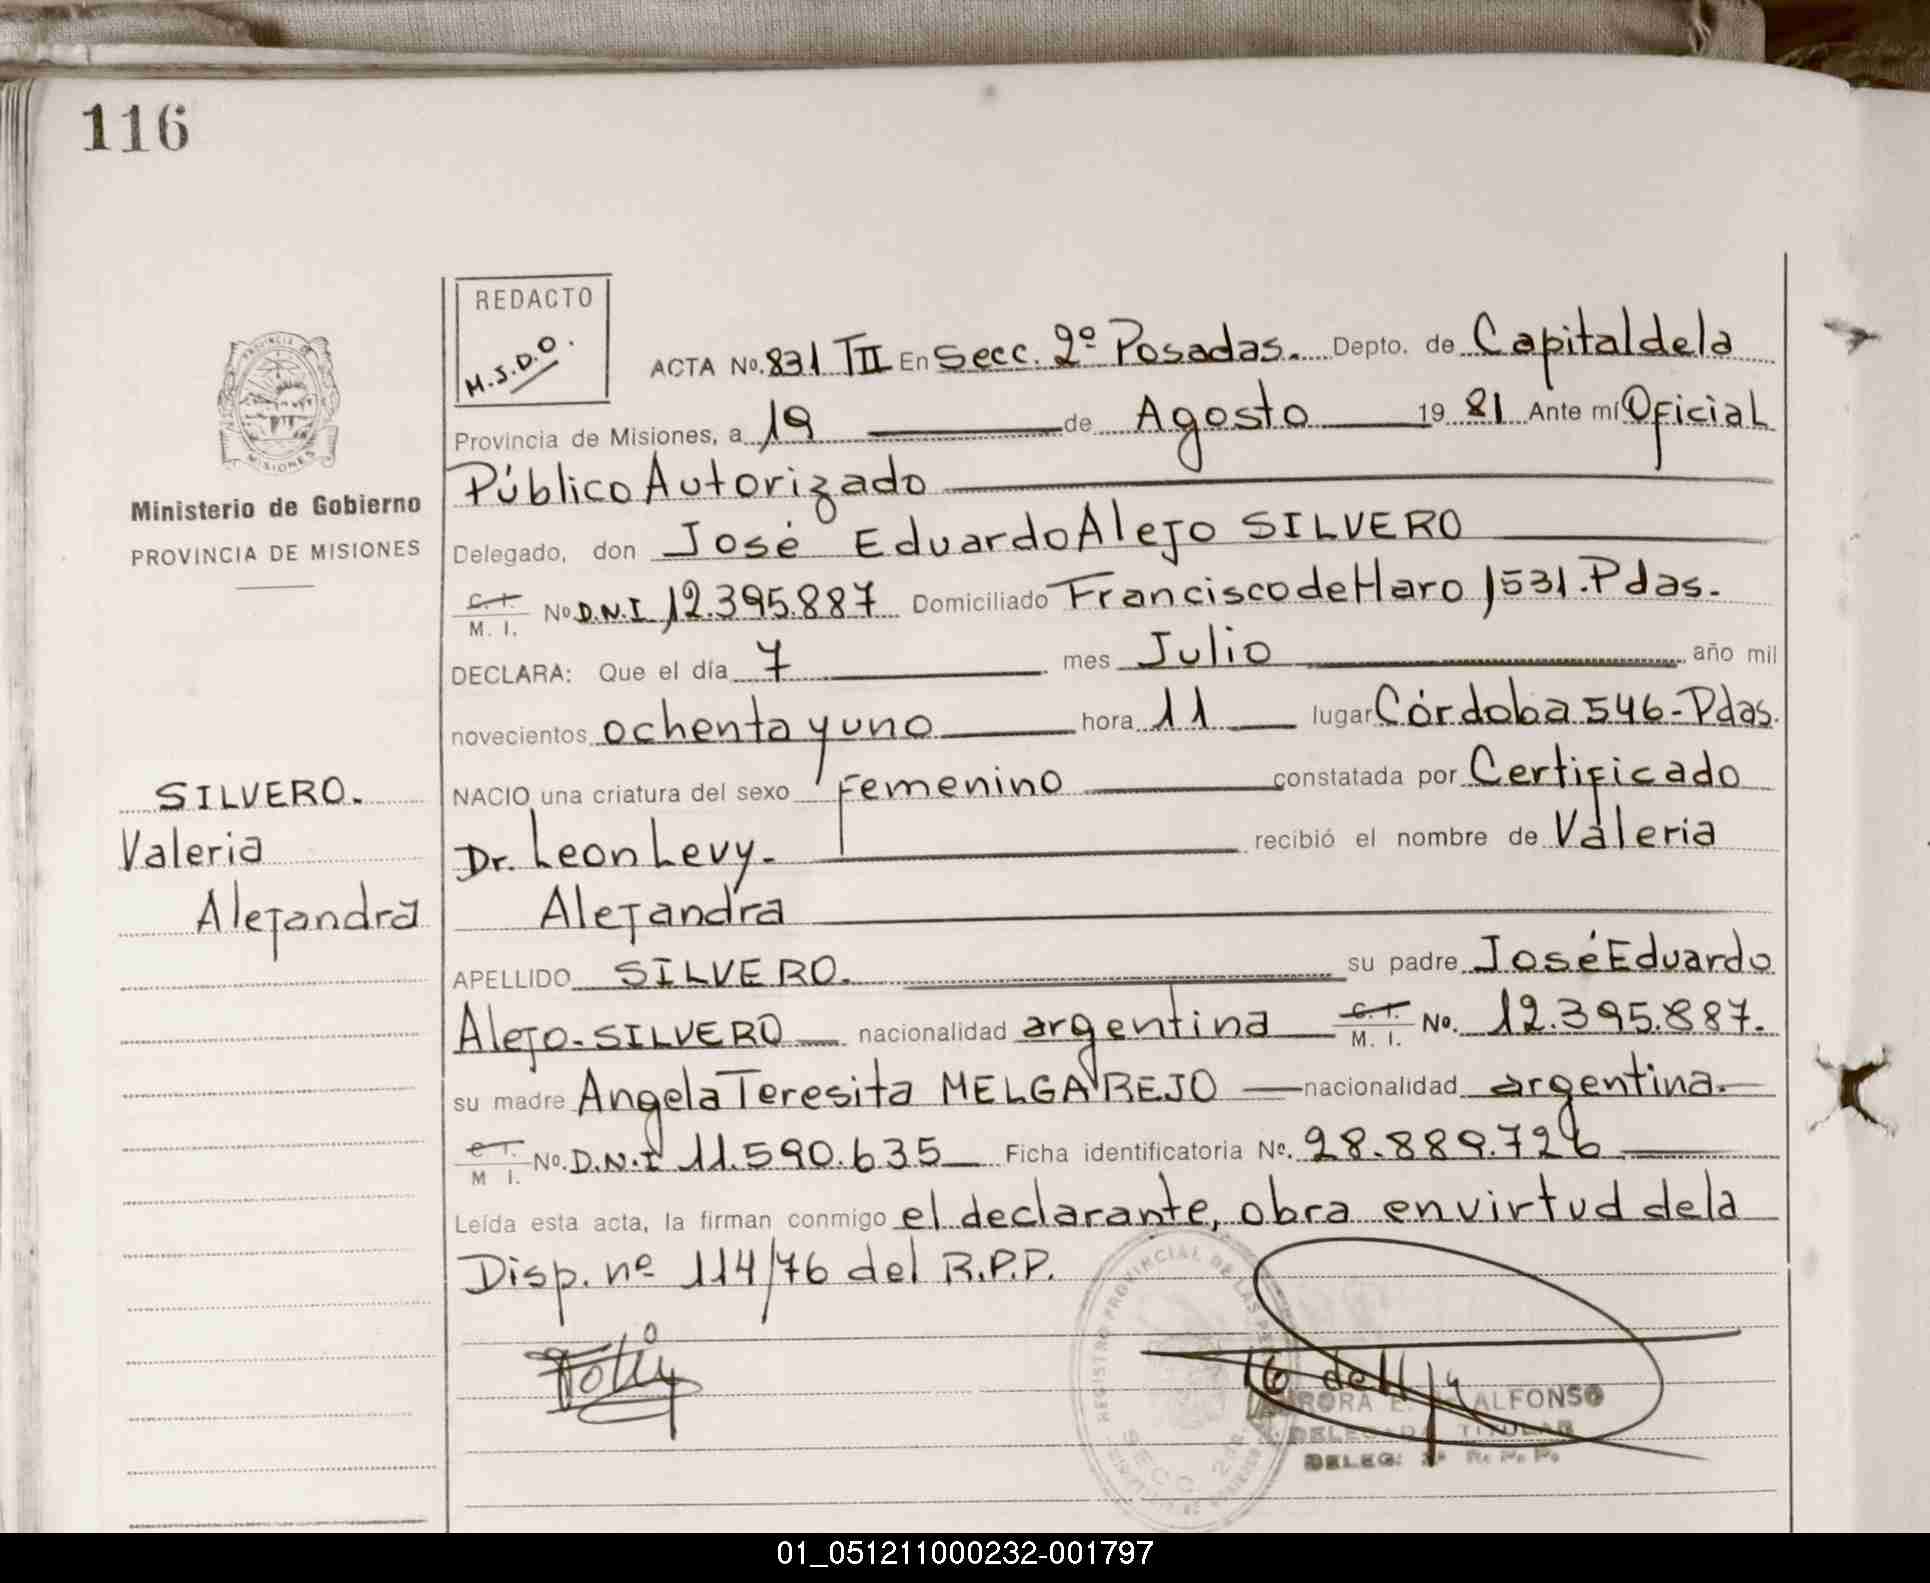 116
REDACTO
M.S.D.O.
ACTA No. 831 TII En Secc. 2º Posadas. Depto. de Capital de la
Provincia de Misiones, a 19 de Agosto 1981 Ante mí Oficial
Público Autorizado
Delegado, don José Eduardo Alejo SILVERO
C. I. M. I. No D.N.I 12.395.887 Domiciliado Francisco de Haro 1531. Pdas.
DECLARA: Que el día 7 mes Julio año mil
novecientos ochenta y uno hora 11 lugar Córdoba 546 - Pdas.
NACIO una criatura del sexo Femenino constatada por Certificado
Dr. Leon Levy. recibió el nombre de Valeria
Alejandra
APELLIDO SILVERO. su padre José Eduardo
Alejo - SILVERO nacionalidad argentina C. I. M. I. No. 12.395.887.
su madre Angela Teresita MELGAREJO nacionalidad argentina.
C. I. M I. No. D.N.I 11.590.635 Ficha identificatoria No. 28.889.726
Leída esta acta, la firman conmigo el declarante, obra en virtud de la
Disp. nº 114/76 del R.P.P.
PROVINCIA DE
MISIONES
Ministerio de Gobierno
PROVINCIA DE MISIONES
SILVERO.
Valeria
Alejandra
REGISTRO PROVINCIAL DE LAS
SECC 2da
ALFONSO
DELEGADA TITULAR
DELEG: 2ª R. P. P.
01_051211000232-001797